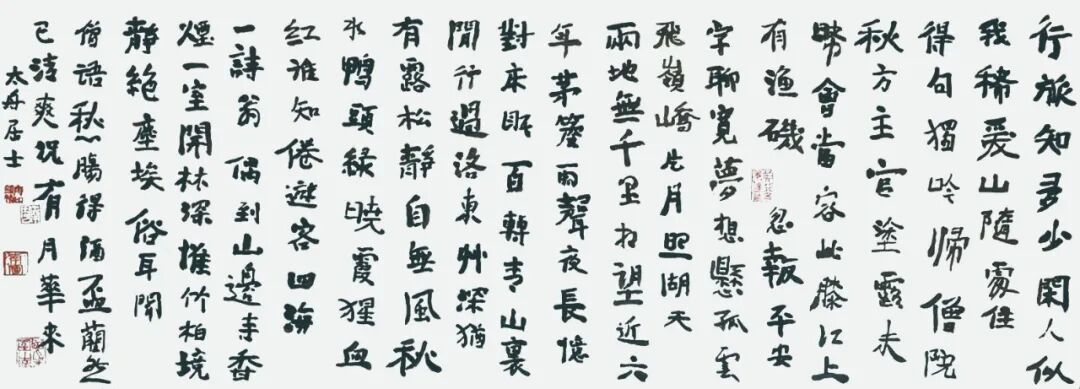 行旅知多少閑人似
我稀愛山隨處住
得句獨吟歸僧院
秋方主官塗露未
晞會當容此膝江上
有漁磯 忽報平安
字聊寬夢想懸孤雲
飛嶺嶠片月照湖天
兩地無千里相望近六
年茅簷雨聲夜長憶
對床眠 百轉青山裏
閒行過洛東艸深猶
有露松靜自無風秋
水鴨頭綠曉霞猩血
紅誰知倦遊客四海
一詩翁 偶到山邊寺香
煙一室閑林深惟竹柏境
靜絕塵埃 俗耳聞
僧語愁腸得酒盃蕭然
已清爽況有月華來
太舟居士